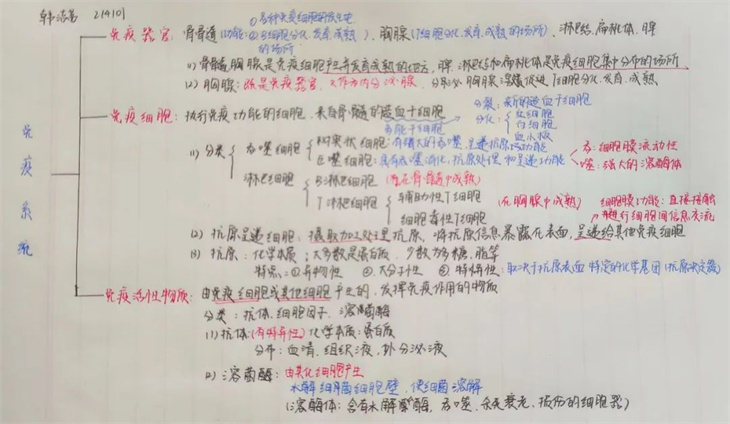 21410
①各种免疫细胞的发生地
免疫器官: 骨骨髓(功能: ②B细胞分化、发育、成熟的场所)、胸腺(T细胞分化、发育、成熟的场所)、淋巴结、扁桃体、脾
(1) 骨髓、胸腺是免疫细胞产生并发育成熟的地方, 脾、淋巴结和扁桃体是免疫细胞集中分布的场所
(2) 胸腺: 既是免疫器官, 又作为内分泌腺, 分泌胸腺激素促进T细胞分化、发育、成熟
免疫细胞: 执行免疫功能的细胞, 来自骨髓的造血干细胞
多能干细胞
分裂: 新的造血干细胞
分化: 红细胞
白细胞
血小板
(1) 分类
吞噬细胞
树突状细胞: 有强大的吞噬、呈递抗原功能
巨噬细胞: 具有吞噬消化, 抗原处理和呈递功能
吞: 细胞膜流动性
噬: 强大的溶酶体
淋巴细胞
B淋巴细胞 (在骨髓中成熟)
T淋巴细胞
辅助性T细胞
细胞毒性T细胞
(在胸腺中成熟)
细胞膜功能: 直接接触
进行细胞间信息交流
(2) 抗原呈递细胞: 摄取加工处理抗原, 将抗原信息暴露在表面, 呈递给其他免疫细胞
(3) 抗原: 化学本质: 大多数是蛋白质, 少数为多糖、脂等
特点: ①异物性 ②大分子性 ③特异性: 取决于抗原表面特定的化学基团(抗原决定簇)
免疫活性物质: 由免疫细胞或其他细胞产生的、发挥免疫作用的物质
分类: 抗体、细胞因子、溶菌酶
(1) 抗体(有特异性) 化学本质: 蛋白质
分布: 血清、组织液、外分泌液
(2) 溶菌酶: 由其他细胞产生
水解细菌细胞壁, 使细菌溶解
(溶酶体: 含有水解酶, 吞噬、衰老、损伤的细胞器)
免疫系统